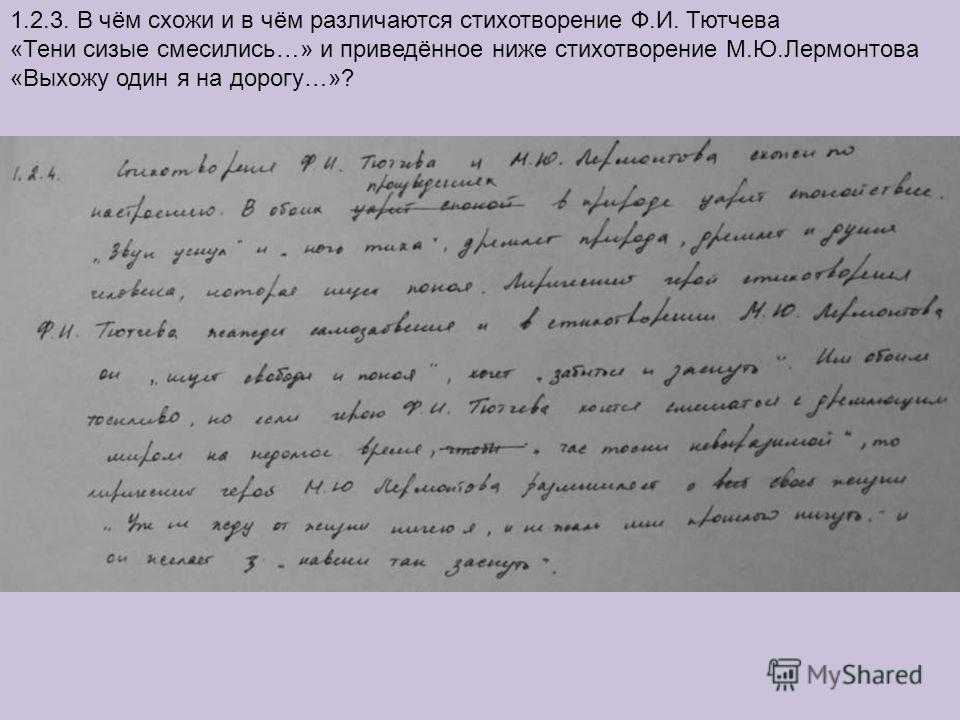 1.2.3. В чём схожи и в чём различаются стихотворение Ф.И. Тютчева
«Тени сизые смесились…» и приведённое ниже стихотворение М.Ю.Лермонтова
«Выхожу один я на дорогу…»?
1.2.4. Стихотворения Ф.И. Тютчева и М.Ю. Лермонтова схожи по
произведениях
настроению. В обоих царит спокой в природе царит спокойствие.
„Звук уснул" и „ночь тиха", дремлет природа, дремлет и душа
человека, которая ищет покоя. Лирический герой стихотворения
Ф.И. Тютчева жаждет самозабвения и в стихотворении М.Ю. Лермонтова
он „ищет свободы и покоя", хочет „забыться и заснуть". Им обоим
тоскливо, но если герою Ф.И. Тютчева хочется смешаться с дремлющим
миром на недолгое время, чтобы „час тоски невыразимой", то
лирический героя М.Ю Лермонтова размышляет о всей своей жизни
„Уж не жду от жизни ничего я, и не жаль мне прошлого ничуть." и
он желает „навеки так заснуть".
MyShared